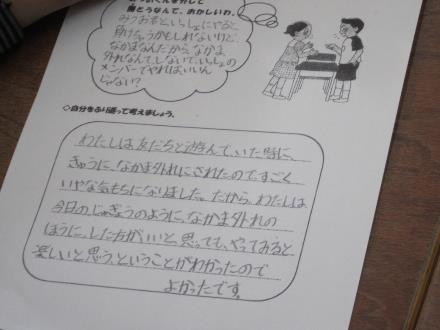 勝とうなんて、おかしいわ。
みつおといっしょにやると、
負けちゃうかもしれないけど、
なかまなんだから、なかま
外れなんてしないで、いっしょの
メンバーでやればいいん
じゃない？
◇自分をふり返って考えましょう。
わたしは、友だちと遊んでいた時に、
きゅうに、なかま外れにされたので、すごく
いやな気もちになりました。だから、わたしは
今日のじゅぎょうのように、なかま外れの
ほうに、した方がいいと、思っても、やってみると、
楽しいと思う、ということがわかったので
よかったです。